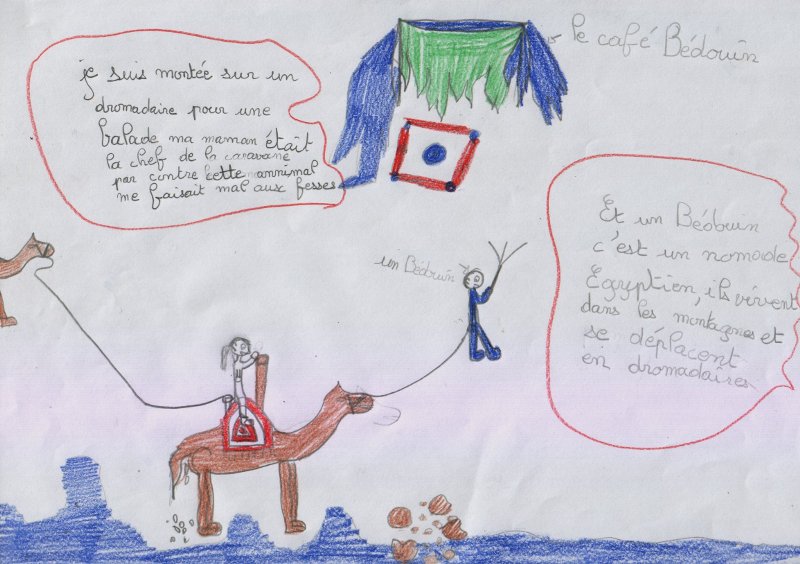 je suis montée sur un
dromadaire pour une
balade ma maman était
la chef de la caravane
par contre cette annimal
me faisait mal aux fesses
le café Bédouin
un Bédouin
Et un Bédouin
c'est un nomade
Egyptien, ils vivent
dans les montagnes et
se déplacent
en dromadaires